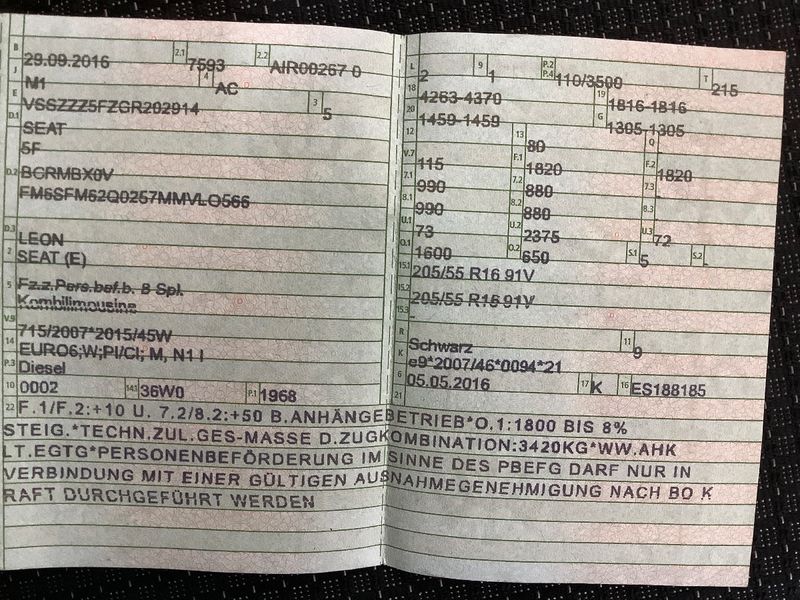 B 29.09.2016 2.1 7593 2.2 AIR00267 0
J M1 4 AC
E VSSZZZ5FZGR202914 3 5
D.1 SEAT
5F
D.2 BGRMBX0V
FM6SFM62Q0257MMVLO566
D.3 LEON
2 SEAT (E)
5 Fz.z.Pers.bef.b. 8 Spl.
Kombilimousine
V.9 715/2007*2015/45W
14 EURO6;W;PI/CI; M, N1 I
P.3 Diesel
10 0002 14.1 36W0 P.1 1968
L 2 9 1 P.2 P.4 110/3500 T 215
18 4263-4370 19 1816-1816
20 1459-1459 G 1305-1305
12 13 80 Q
V.7 115 F.1 1820 F.2 1820
7.1 990 7.2 880 7.3
8.1 990 8.2 880 8.3
U.1 73 U.2 2375 U.3 72
O.1 1600 O.2 650 S.1 5 S.2
15.1 205/55 R16 91V
15.2 205/55 R16 91V
15.3
R Schwarz 11 9
K e9*2007/46*0094*21
6 05.05.2016 17 K 16 ES188185
21
22 F.1/F.2:+10 U. 7.2/8.2:+50 B.ANHÄNGEBETRIEB*O.1:1800 BIS 8%
STEIG.*TECHN.ZUL.GES-MASSE D.ZUGKOMBINATION:3420KG*WW.AHK
LT.EGTG*PERSONENBEFÖRDERUNG IM SINNE DES PBEFG DARF NUR IN
VERBINDUNG MIT EINER GÜLTIGEN AUSNAHMEGENEHMIGUNG NACH BO K
RAFT DURCHGEFÜHRT WERDEN